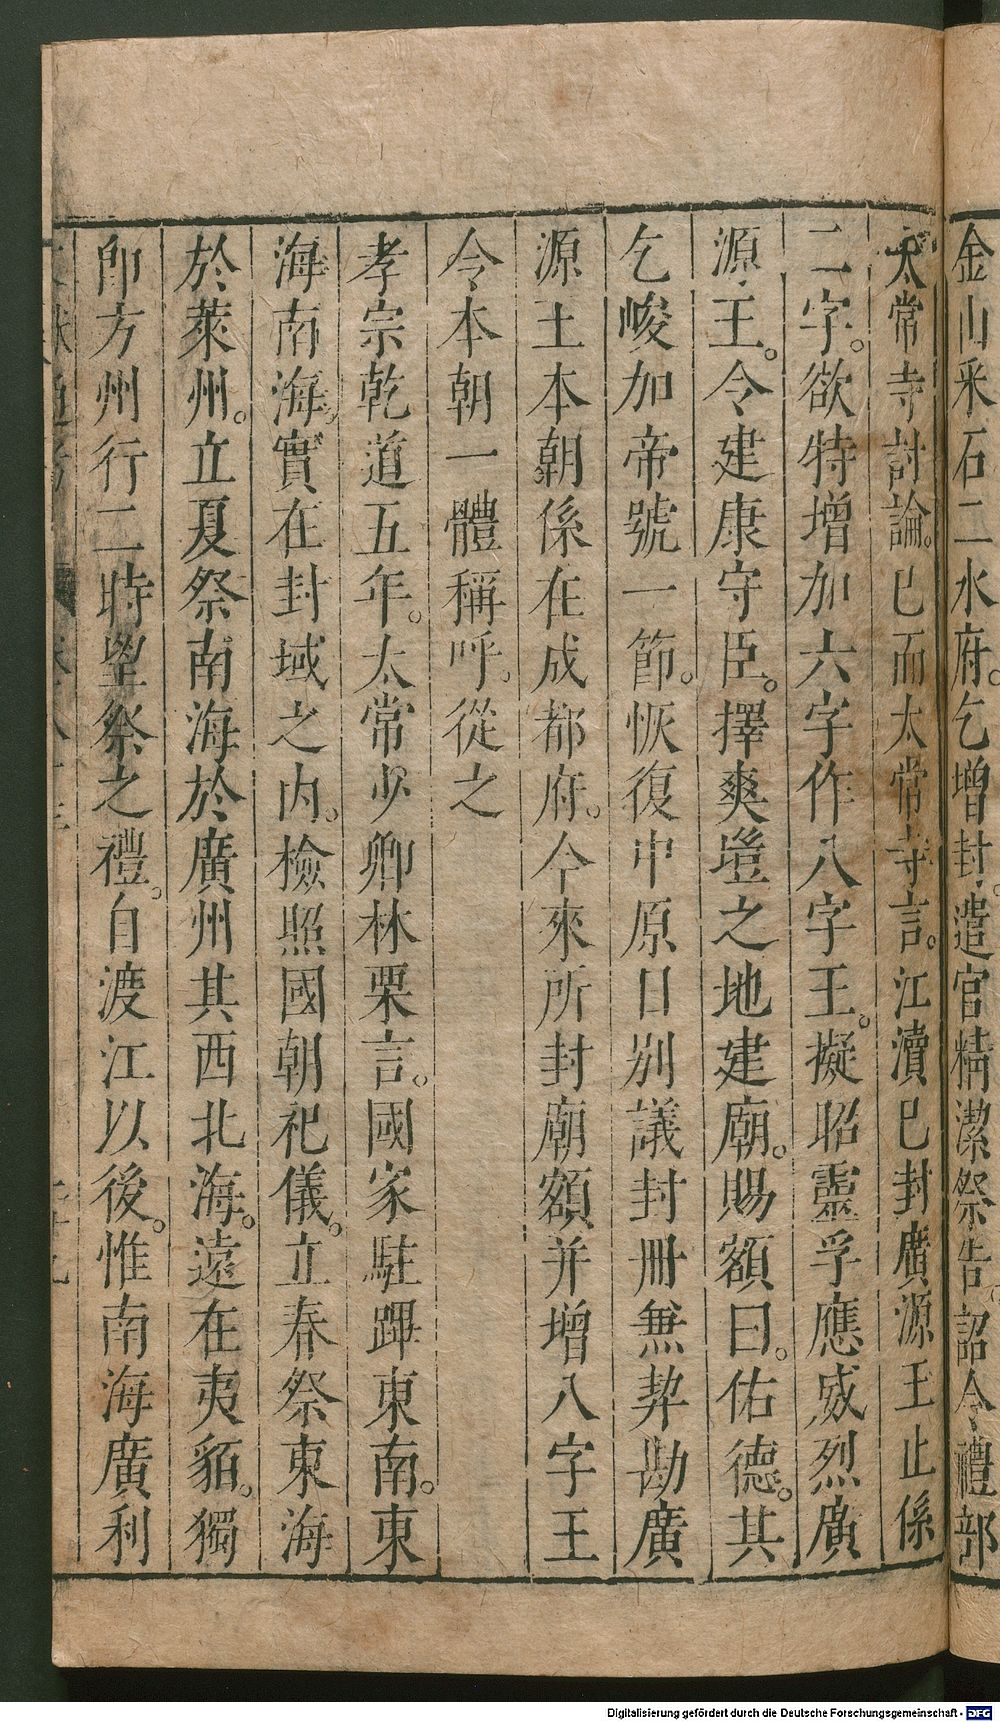 金山采石二水府乞增封遣官精潔祭告詔令禮部
太常寺討論已而太常寺言江瀆已封廣源王止係
二字欲特增加六字作八字王擬昭靈孚應威烈廣
源王令建康守臣擇爽塏之地建廟賜額曰佑德其
乞峻加帝號一節恢復中原日別議封冊無契勘廣
源王本朝係在成都府今來所封廟額并增八字王
令本朝一體稱呼從之
孝宗乾道五年太常少卿林栗言國家駐蹕東南東
海南海實在封域之内檢照國朝祀儀立春祭東海
於萊州立夏祭南海於廣州其西北海遠在夷貊獨
即方州行二時望祭之禮自渡江以後惟南海廣利
Digitalisierung gefördert durch die Deutsche Forschungsgemeinschaft - DFG